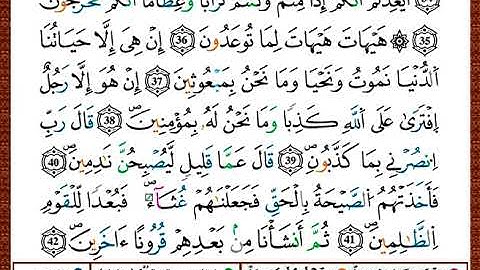 أَيَعِدُكُمُ أَنَّكُمُ إِذَا مِتُّمْ وَكُنتُمْ تُرَابًا وَعِظَامًا أَنَّكُم مُّخْرَجُونَ
35 ۞ هَيْهَاتَ هَيْهَاتَ لِمَا تُوعَدُونَ 36 إِنْ هِيَ إِلَّا حَيَاتُنَا
اَ۬لدُّنْيَا نَمُوتُ وَنَحْيَا وَمَا نَحْنُ بِمَبْعُوثِينَ 37 إِنْ هُوَ إِلَّا رَجُلٌ
اِ۪فْتَرَىٰ عَلَى اَ۬للَّهِ كَذِبًا وَمَا نَحْنُ لَهُۥ بِمُؤْمِنِينَ 38 قَالَ رَبِّ
اِ۟نصُرْنِي بِمَا كَذَّبُونِ 39 قَالَ عَمَّا قَلِيلٍ لَّيُصْبِحُنَّ نَٰدِمِينَ 40
فَأَخَذَتْهُمُ اُ۬لصَّيْحَةُ بِالْحَقِّ فَجَعَلْنَٰهُمْ غُثَآءً فَبُعْدًا لِّلْقَوْمِ
اِ۬لظَّٰلِمِينَ 41 ثُمَّ أَنشَأْنَا مِنۢ بَعْدِهِمْ قُرُونًا ءَاخَرِينَ 42